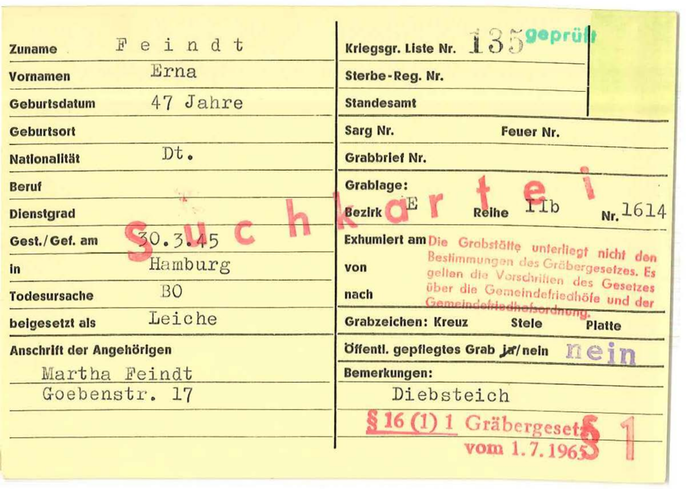 Zuname Feindt
Vornamen Erna
Geburtsdatum 47 Jahre
Geburtsort
Nationalität Dt.
Beruf
Dienstgrad
Gest./Gef. am 30.3.45
in Hamburg
Todesursache BO
beigesetzt als Leiche
Anschrift der Angehörigen
Martha Feindt
Goebenstr. 17
Kriegsgr. Liste Nr. 135 geprüft
Sterbe-Reg. Nr.
Standesamt
Sarg Nr. Feuer Nr.
Grabbrief Nr.
Grablage:
Suchkartei
Bezirk E Reihe IIb Nr. 1614
Exhumiert am
von
nach
Die Grabstätte unterliegt nicht den
Bestimmungen des Gräbergesetzes. Es
gelten die Vorschriften des Gesetzes
über die Gemeindefriedhöfe und der
Gemeindefriedhofsordnung.
Grabzeichen: Kreuz Stele Platte
Öffentl. gepflegtes Grab ja/nein nein
Bemerkungen:
Diebsteich
§ 16 (1) 1 Gräbergesetz
vom 1.7.1965
§ 1